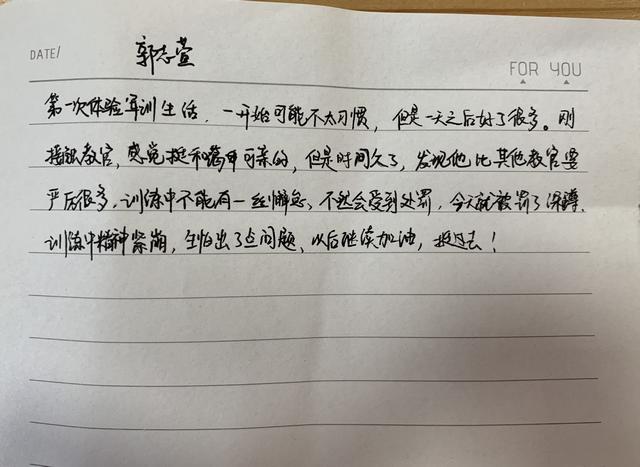 DATE/
郭志萱
FOR YOU
第一次体验军训生活，一开始可能不太习惯，但是一天之后好了很多。刚
接触教官，感觉挺和蔼可亲的，但是时间久了，发现他比其他教官要
严厉很多，训练中不能有一丝懈怠，不然会受到处罚，今天就被罚了深蹲，
训练中精神紧崩，生怕出了点问题、以后继续加油，挺过去！